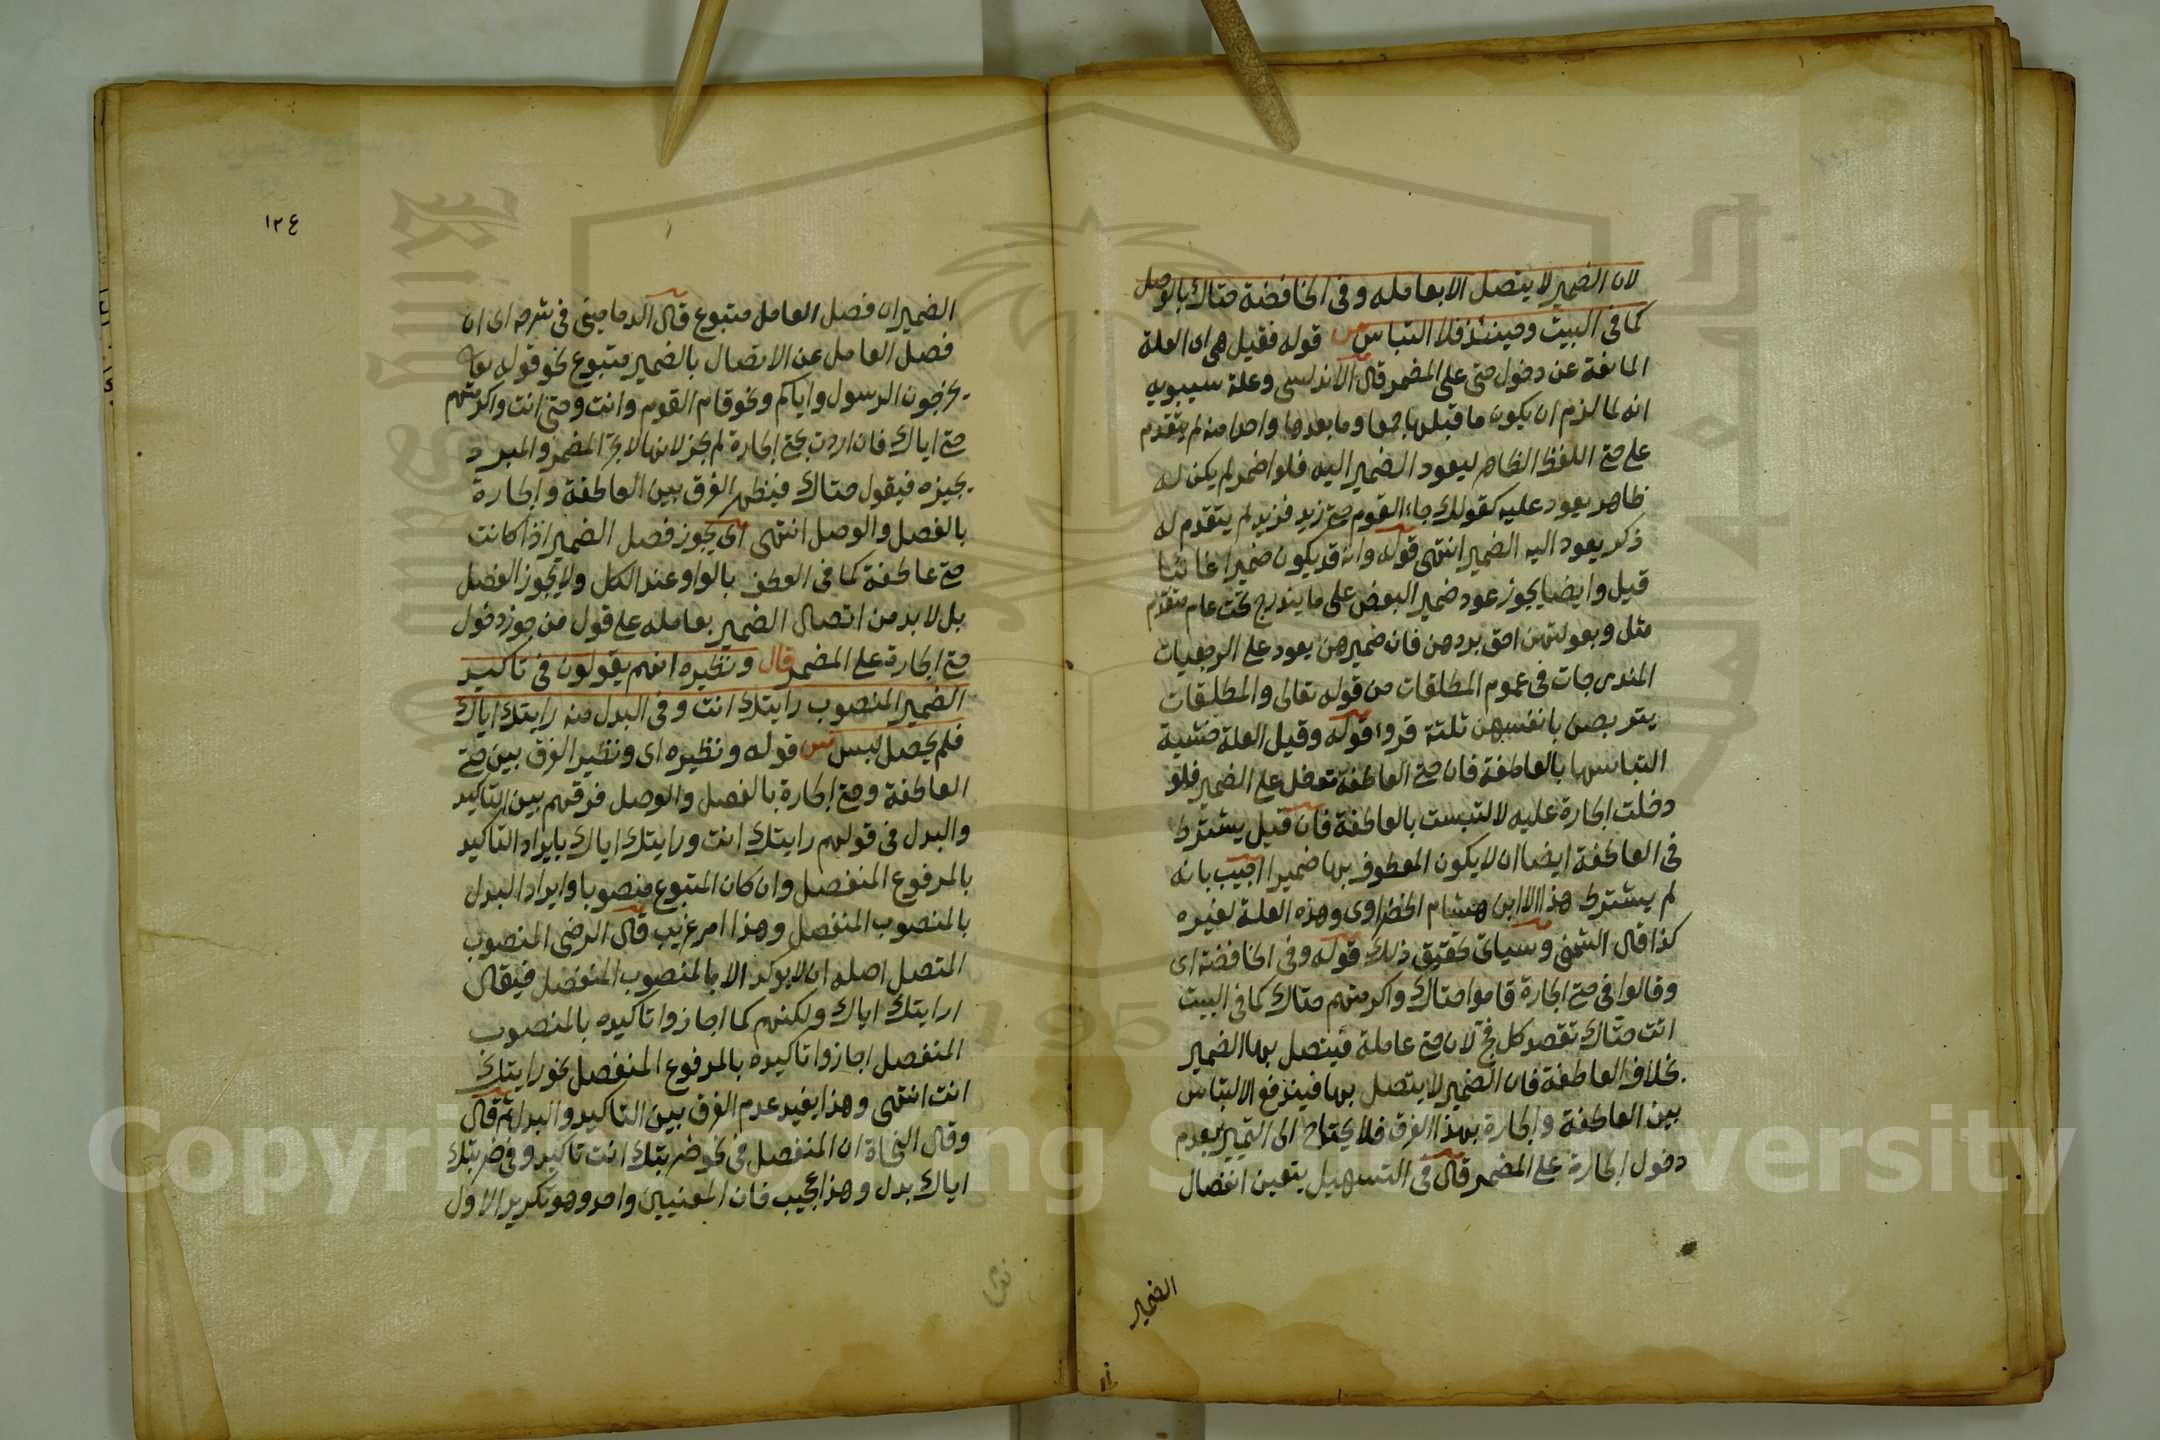 لان الضمير لا يتصل الا بعامله وفى الخافضة حتاك بالوصل
كما فى البيت وحينئذ فلا التباس س قوله فقيل هى اى العلة
المانعة عن دخول حتى على المضمر قال الاندلسى وعلة سيبويه
انه لما لزم ان يكون ما قبلها جمعا وما بعدها واحدا منه لم يتقدم
على حتى اللفظ الظاهر ليعود الضمير اليه فلو اضمر لم يكن له
ظاهر يعود عليه كقولك جاء القوم حتى زيد فزيد لم يتقدم له
ذكر يعود اليه الضمير انتهى قوله وانه قد يكون ضميرا غائبا
قيل وايضا يجوز عود ضمير البعض على ما يندرج تحت عام متقدم
مثل وبعولتهن احق بردهن فان ضميرهن يعود على الرجعيات
المندرجات فى عموم المطلقات من قوله تعالى والمطلقات
يتربصن بانفسهن ثلثة قروء قوله وقيل العلة خشية
التباسها بالعاطفة فان حتى العاطفة تدخل على الضمير فلو
دخلت الجارة عليه لالتبست بالعاطفة فان قيل يشترط
فى العاطفة ايضا ان لا يكون المعطوف بها ضميرا اجيب بانه
لم يشترط هذا الا ابن هشام الخضراوى وهذه العلة لغيره
كذا قال الشمنى وسياتى تحقيق ذلك قوله وفى الخافضة اى
وقالوا فى حتى الجارة قاموا حتاك واكرمتهم حتاك كما فى البيت
اتت حتاك تقصد كل فج لان حتى عاملة فيتصل بها الضمير
بخلاف العاطفة فان الضمير لا يتصل بها فيندفع الالتباس
بين العاطفة والجارة بهذا الفرق فلا يحتاج الى التمييز بعدم
دخول الجارة على المضمر قال فى التسهيل يتعين انفصال
الضمير
١٢٤
الضمير ان فصل العامل متبوع قال الدمامينى فى شرحه اى ان
فصل العامل عن الاتصال بالضمير متبوع نحو قوله تعا
يخرجون الرسول واياكم ونحو قام القوم وانت وحتى انت واكرمتهم
حتى اياك فان اردت بحتى الجارة لم يجز لانها لا تجر المضمر والمبرد
يجيزه فيقول حتاك فيظهر الفرق بين العاطفة والجارة
بالفصل والوصل انتهى اى يجوز فصل الضمير اذا كانت
حتى عاطفة كما فى العطف بالواو عند الكل ولا يجوز الفصل
بل لا بد من اتصال الضمير بعامله على قول من جوز دخول
حتى الجارة على المضمر قال ونظيره انهم يقولون فى تاكيد
الضمير المنصوب رايتك انت وفى البدل منه رايتك اياك
فلم يحصل لبس س قوله ونظيره اى ونظير الفرق بين حتى
العاطفة وحتى الجارة بالفصل والوصل فرقهم بين التاكيد
والبدل فى قولهم رايتك انت ورايتك اياك بايراد التاكيد
بالمرفوع المنفصل وان كان المتبوع منصوبا وايراد البدل
بالمنصوب المنفصل وهذا امر غريب قال الرضى المنصوب
المتصل اصله ان لا يوكد الا بالمنصوب المنفصل فيقال
رايتك اياك ولكنهم كما اجازوا تاكيده بالمنصوب
المنفصل اجازوا تاكيده بالمرفوع المنفصل نحو رايتك
انت انتهى وهذا يفيد عدم الفرق بين التاكيد والبدل ثم قال
وقال النحاة ان المنفصل فى نحو ضربتك انت تاكيد وفى ضربتك
اياك بدل وهذا عجيب فان المعنيين واحد وهو تكرير الاول
Copyright © King Saud University
1957